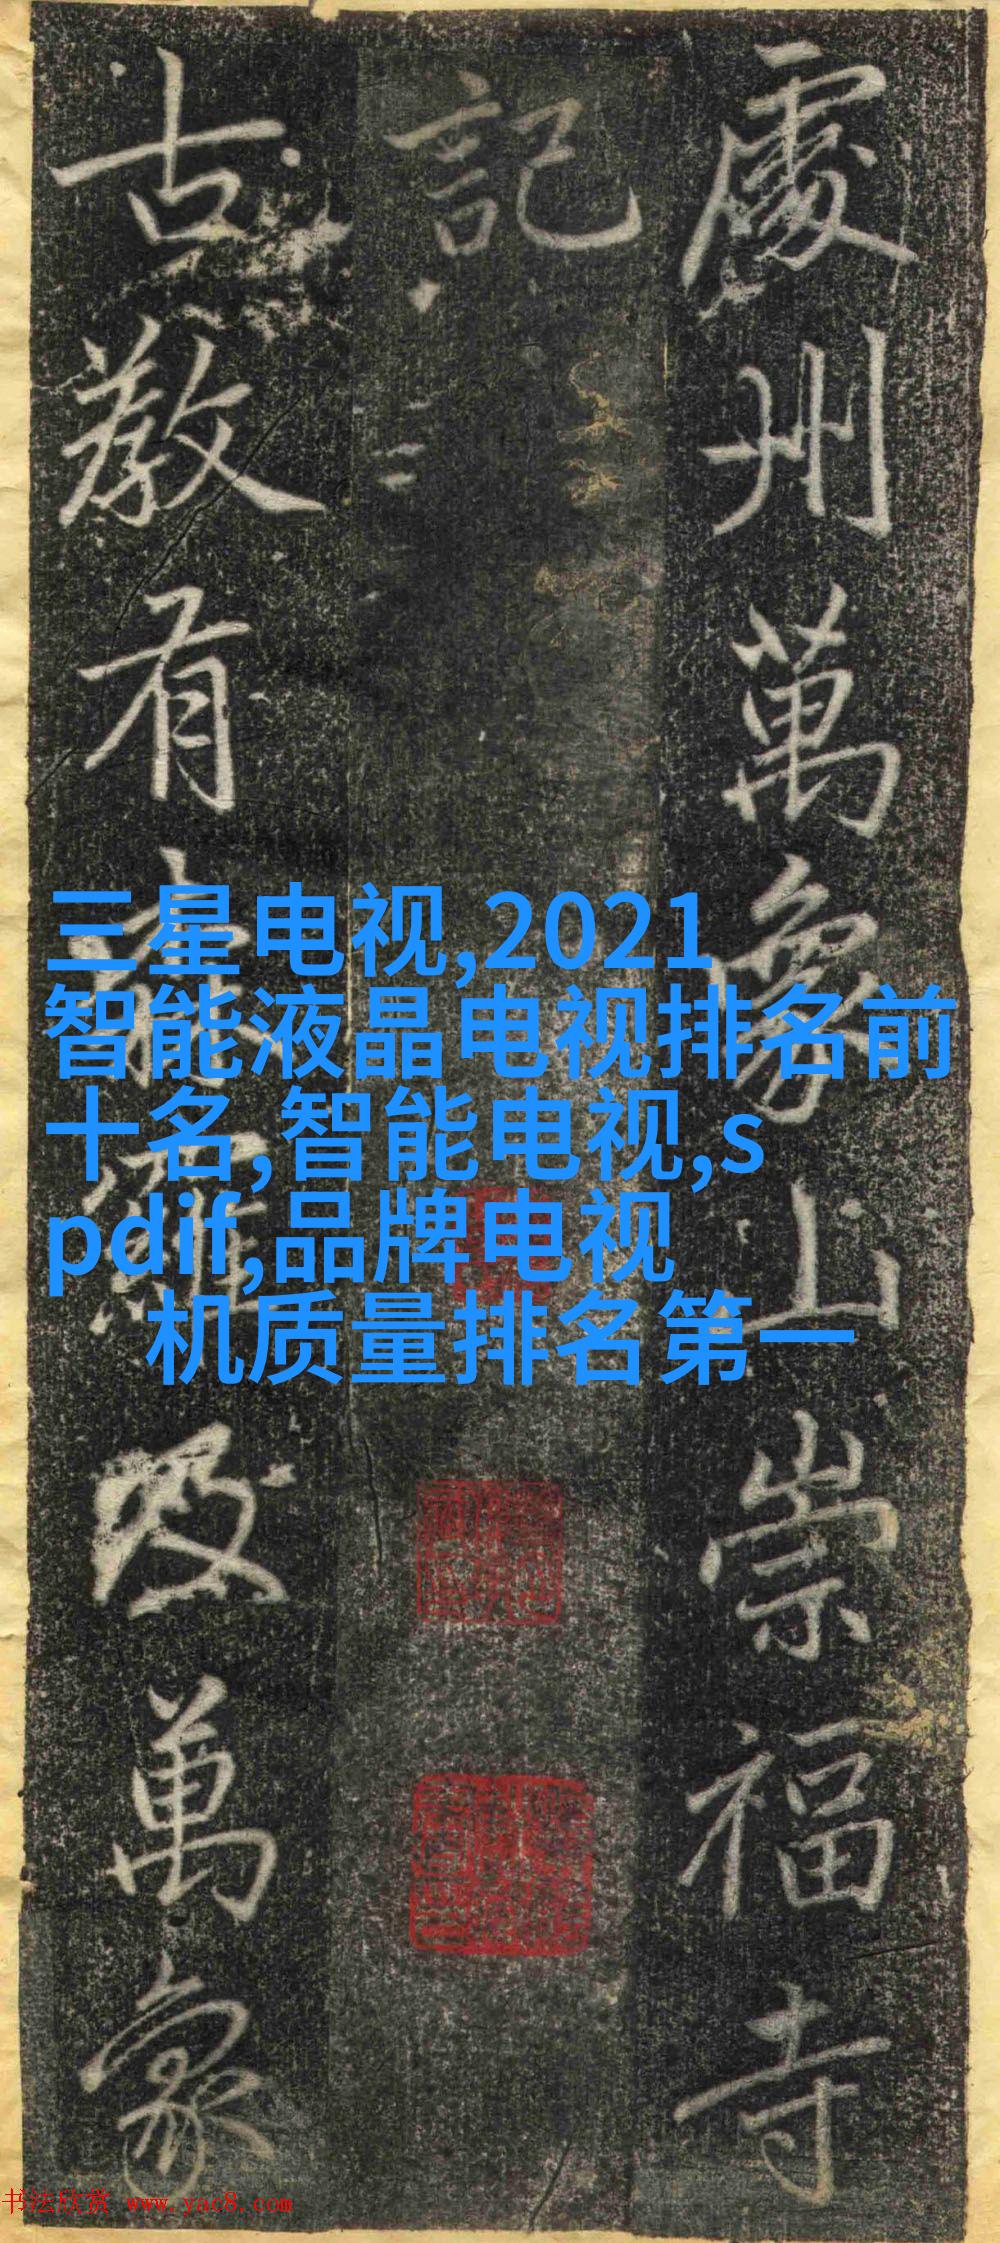 處州萬象山崇福寺
記
古教有森羅及萬象
三星电视,2021
智能液晶电视排名前
十名,智能电视,s
pdif,品牌电视
机质量排名第一
书法欣赏 www.yac8.com